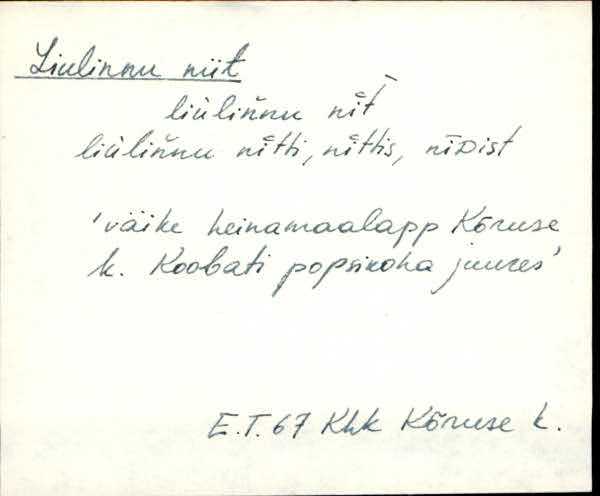 Liulinnu niit
liùliǹnu nìt̄
liùliǹnu nìtti, nìttis, nīᴅist
'väike heinamaalapp Kõruse
k. Koobati popsikoha juures'
E.T. 67 Khk Kõruse k.